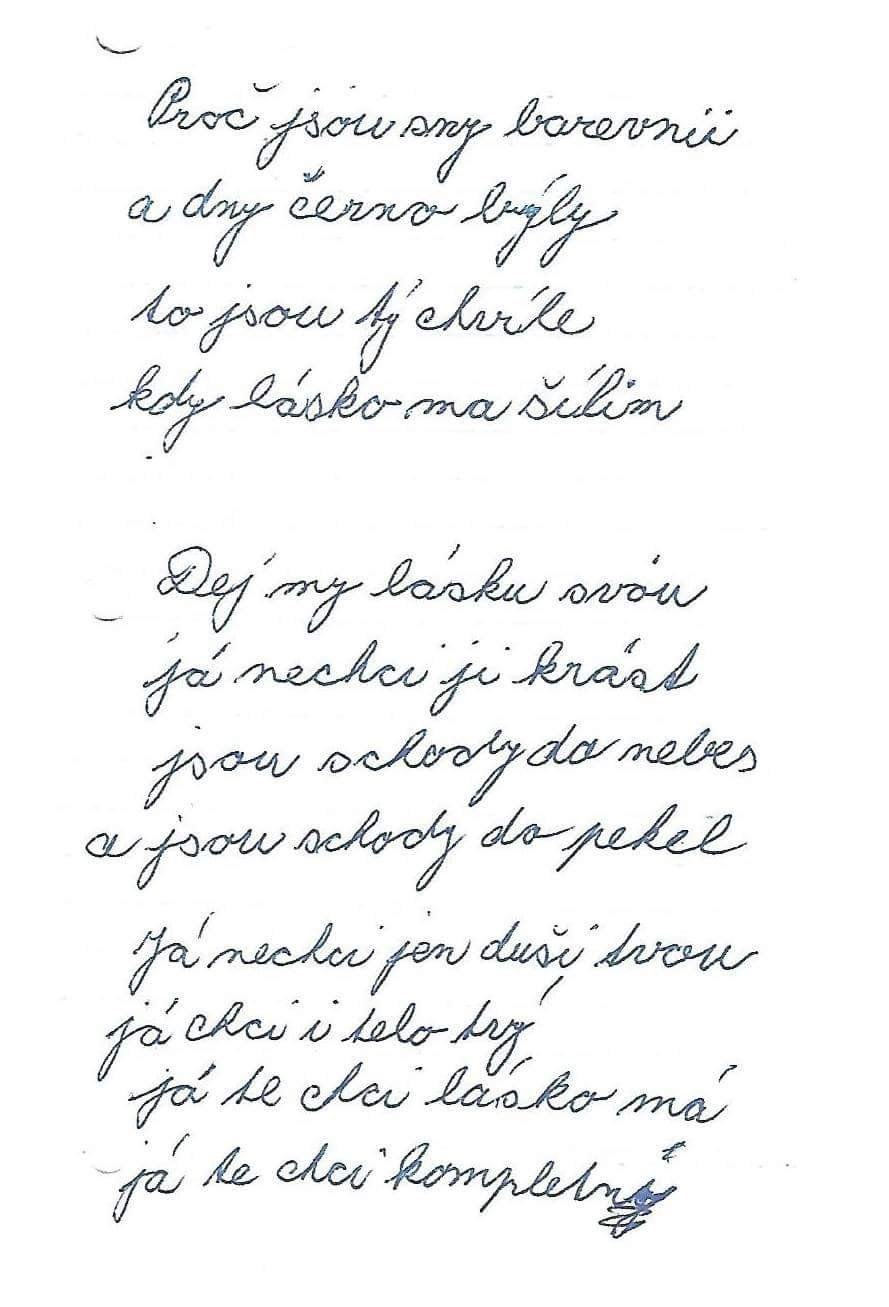 Proč jsou sny barevnii
a dny černo býly
to jsou tý chvíle
kdy lásko ma šílim
Dej my lásku svóu
já nechci ji krást
jsou schody do nebes
a jsou schody do pekel
Já nechci jen duší tvou
já chci i telo tvý
já te chci lásko má
já te chci kompletný